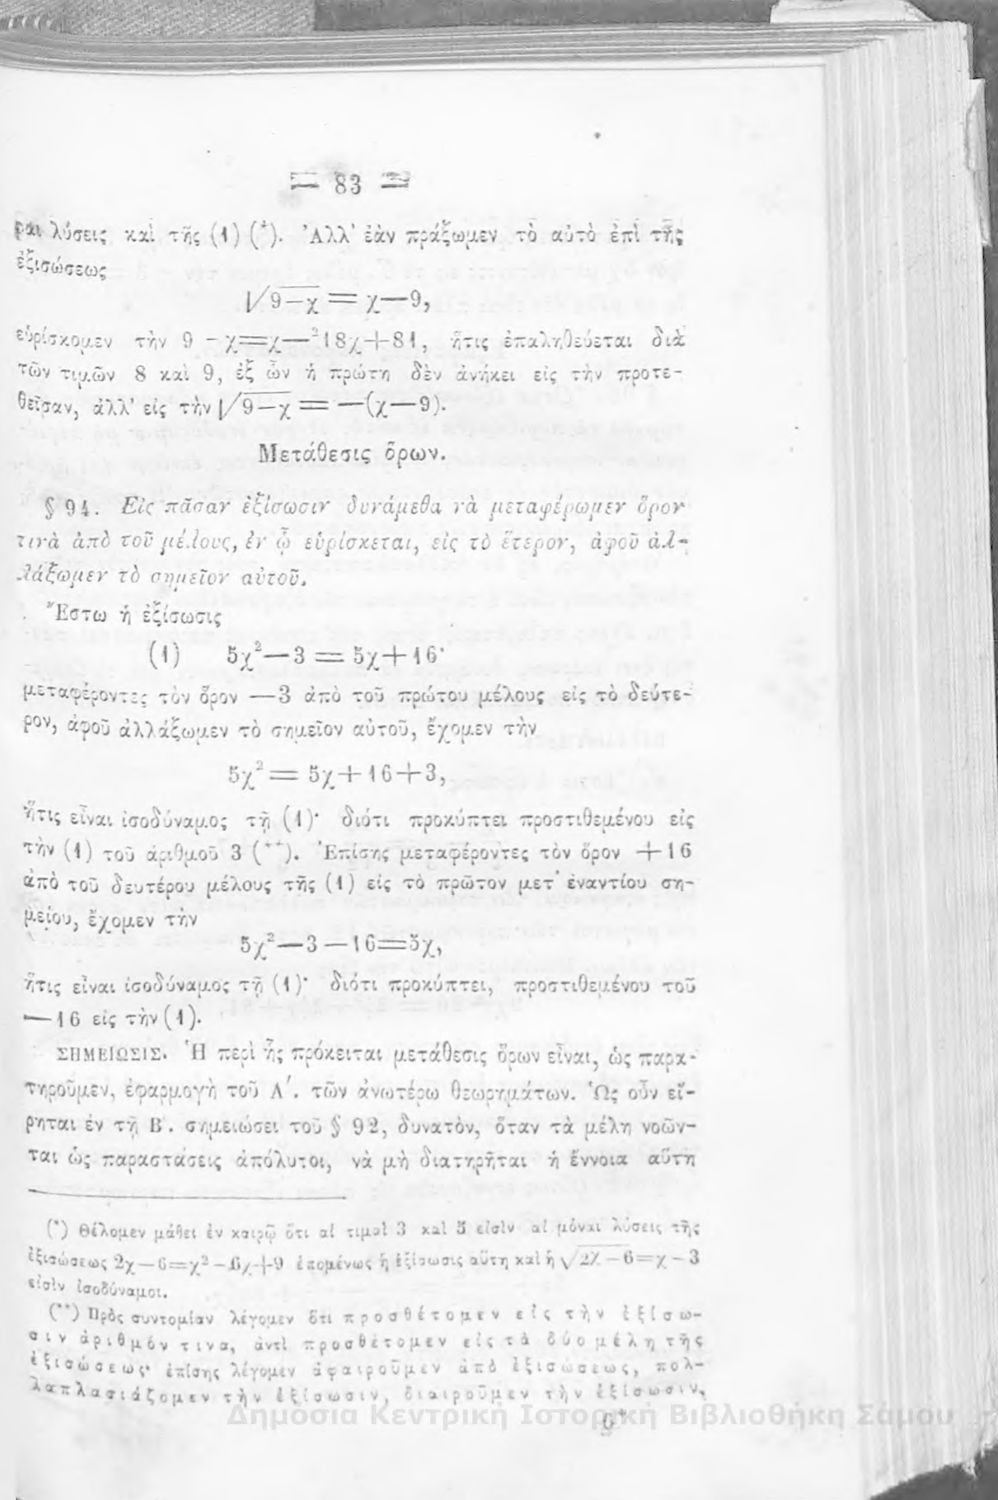 — 83 —
ραι λύσεις καὶ τῆς (1) (*). Ἀλλ' ἐὰν πράξωμεν τὸ αὐτὸ ἐπὶ τῆς
ἐξισώσεως
√9—χ = χ—9,
εὑρίσκομεν τὴν 9 — χ=χ—²18χ+81, ἥτις ἐπαληθεύεται διὰ
τῶν τιμῶν 8 καὶ 9, ἐξ ὧν ἡ πρώτη δὲν ἀνήκει εἰς τὴν προτε-
θεῖσαν, ἀλλ' εἰς τὴν √9—χ = —(χ—9).
Μετάθεσις ὅρων.
§ 94. Εἰς πᾶσαν ἐξίσωσιν δυνάμεθα νὰ μεταφέρωμεν ὅρον
τινὰ ἀπὸ τοῦ μέλους, ἐν ᾧ εὑρίσκεται, εἰς τὸ ἕτερον, ἀφοῦ ἀλ-
λάξωμεν τὸ σημεῖον αὐτοῦ.
Ἔστω ἡ ἐξίσωσις
(1) 5χ²—3 = 5χ+16·
μεταφέροντες τὸν ὅρον —3 ἀπὸ τοῦ πρώτου μέλους εἰς τὸ δεύτε-
ρον, ἀφοῦ ἀλλάξωμεν τὸ σημεῖον αὐτοῦ, ἔχομεν τὴν
5χ²= 5χ+16+3,
ἥτις εἶναι ἰσοδύναμος τῇ (1)· διότι προκύπτει προστιθεμένου εἰς
τὴν (1) τοῦ ἀριθμοῦ 3 (**). Ἐπίσης μεταφέροντες τὸν ὅρον +16
ἀπὸ τοῦ δευτέρου μέλους τῆς (1) εἰς τὸ πρῶτον μετ' ἐναντίου ση-
μείου, ἔχομεν τὴν
5χ²—3—16=5χ,
ἥτις εἶναι ἰσοδύναμος τῇ (1)· διότι προκύπτει, προστιθεμένου τοῦ
—16 εἰς τὴν (1).
ΣΗΜΕΙΩΣΙΣ. Ἡ περὶ ἧς πρόκειται μετάθεσις ὅρων εἶναι, ὡς παρα-
τηροῦμεν, ἐφαρμογὴ τοῦ Α΄. τῶν ἀνωτέρω θεωρημάτων. Ὡς οὖν εἴ-
ρηται ἐν τῇ Β΄. σημειώσει τοῦ § 92, δυνατὸν, ὅταν τὰ μέλη νοῶν-
ται ὡς παραστάσεις ἀπόλυτοι, νὰ μὴ διατηρῆται ἡ ἔννοια αὕτη
(*) Θέλομεν μάθει ἐν καιρῷ ὅτι αἱ τιμαὶ 3 καὶ 5 εἰσὶν αἱ μόναι λύσεις τῆς
ἐξισώσεως 2χ—6=χ²—6χ+9 ἑπομένως ἡ ἐξίσωσις αὕτη καὶ ἡ √2χ—6=χ—3
εἰσὶν ἰσοδύναμοι.
(**) Πρὸς συντομίαν λέγομεν ὅτι προσθέτομεν εἰς τὴν ἐξίσω-
σιν ἀριθμόν τινα, ἀντὶ προσθέτομεν εἰς τὰ δύο μέλη τῆς
ἐξισώσεως· ἐπίσης λέγομεν ἀφαιροῦμεν ἀπὸ ἐξισώσεως, πολ-
λαπλασιάζομεν τὴν ἐξίσωσιν, διαιροῦμεν τὴν ἐξίσωσιν,
6*
Δημόσια Κεντρική Ιστορική Βιβλιοθήκη Σάμου